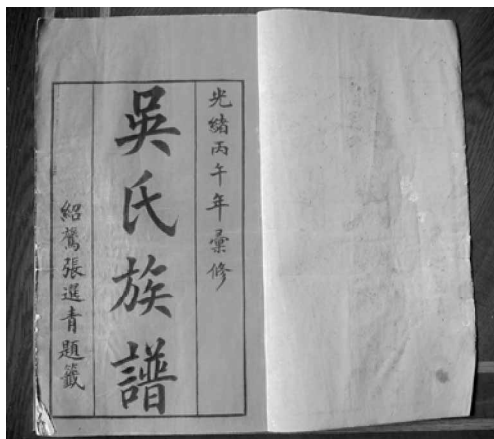 光緒丙午年彙修
吳氏族譜
紹騫張選青題籤